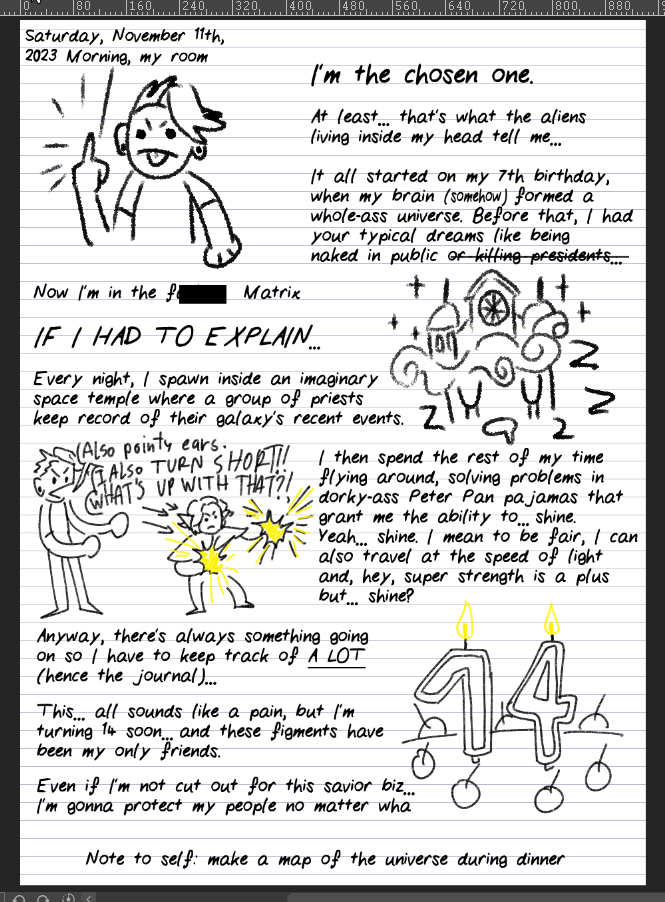 0 80 160 240 320 400 480 560 640 720 800 880
Saturday, November 11th,
2023 Morning, my room
I'm the chosen one.
At least... that's what the aliens
living inside my head tell me...
It all started on my 7th birthday,
when my brain (somehow) formed a
whole-ass universe. Before that, I had
your typical dreams like being
naked in public or killing presidents...
Now I'm in the f Matrix
IF I HAD TO EXPLAIN...
Every night, I spawn inside an imaginary
space temple where a group of priests
keep record of their galaxy's recent events.
Z
Z
Z
Z
(Also pointy ears.
I ALSO TURN SHORT!!
WHAT'S UP WITH THAT?!
I then spend the rest of my time
flying around, solving problems in
dorky-ass Peter Pan pajamas that
grant me the ability to... shine.
Yeah... shine. I mean to be fair, I can
also travel at the speed of light
and, hey, super strength is a plus
but... shine?
Anyway, there's always something going
on so I have to keep track of A LOT
(hence the journal)...
This... all sounds like a pain, but I'm
turning 14 soon... and these figments have
been my only friends.
14
Even if I'm not cut out for this savior biz...
I'm gonna protect my people no matter wha
Note to self: make a map of the universe during dinner